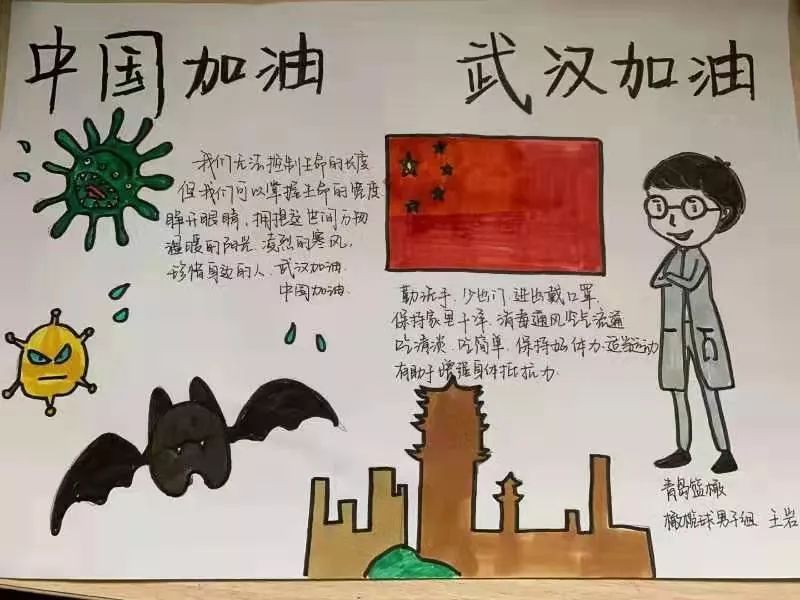 中国加油
武汉加油
我们无法控制生命的长度
但我们可以掌握生命的宽度
睁开眼睛，拥抱这世间万物
温暖的阳光，凌烈的寒风，
珍惜身边的人，武汉加油
中国加油
勤洗手，少出门，进出戴口罩
保持家里干净，消毒通风空气流通
吃清淡，吃简单，保持好体力，适当运动
有助于增强身体抵抗力
青岛篮橄
橄榄球男子组 王岩